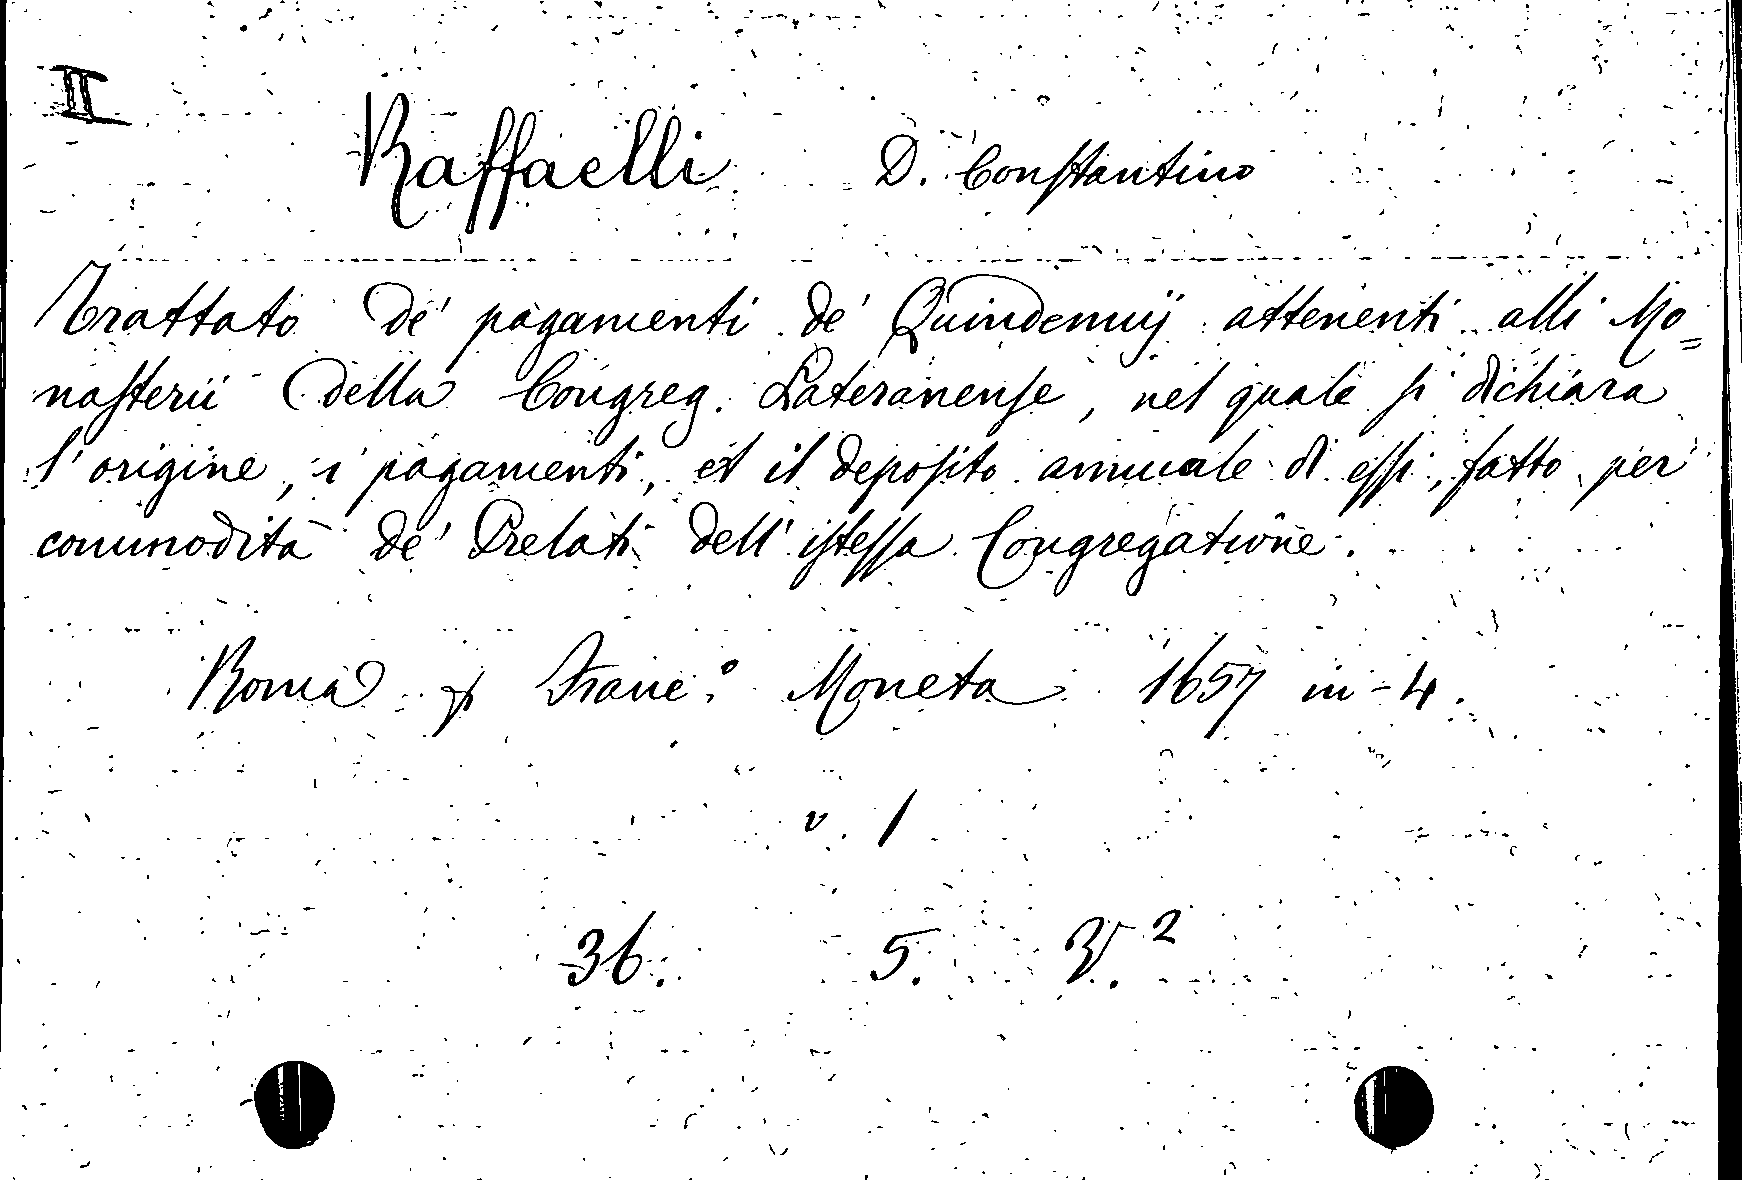 II
Raffaelli D. Constantino
Trattato de' pagamenti de' Quindennij attenenti alli Mo=
nasterii della Congreg. Lateranense, nel quale si dichiara
l'origine, i pagamenti, et il deposito annuale di essi, fatto per
commodità de' Prelati dell'istessa Congregatione.
Roma Franc.º Moneta 1657 in-4.
v. 1
36. 5. 2